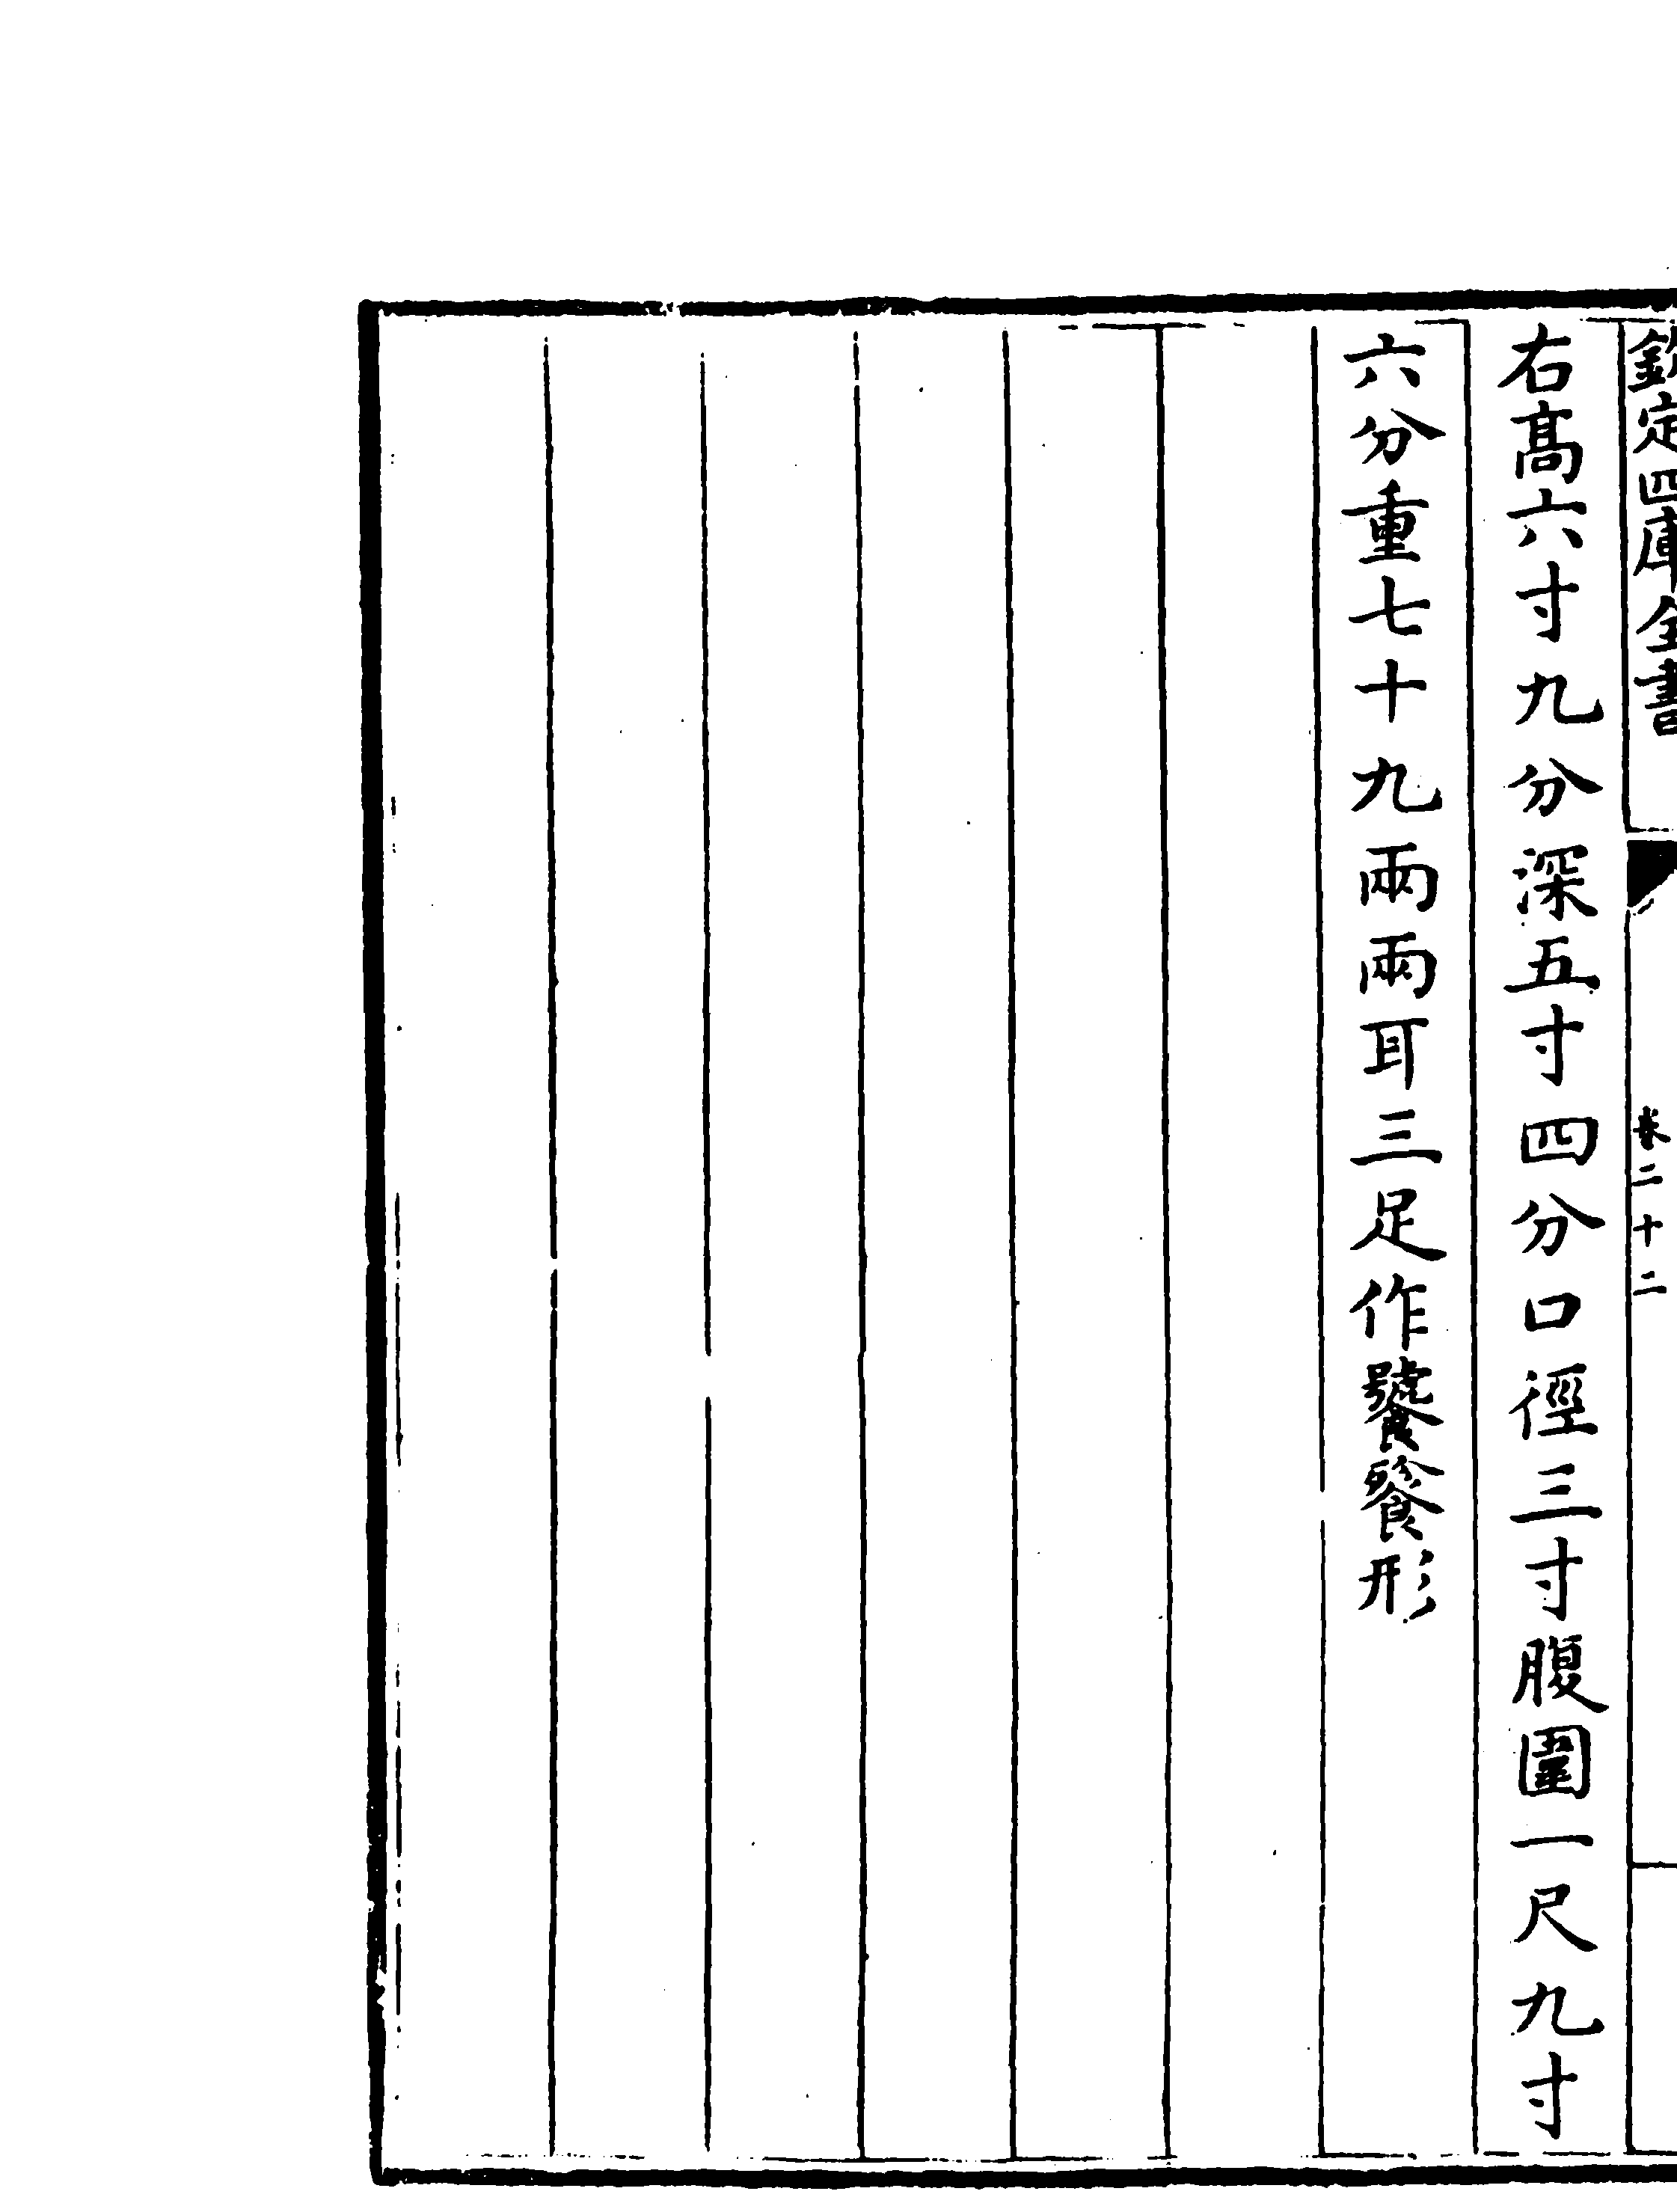 欽定四庫全書 卷二十二
右髙六寸九分深五寸四分口徑三寸腹圍一尺九寸
六分重七十九兩兩耳三足作饕餮形